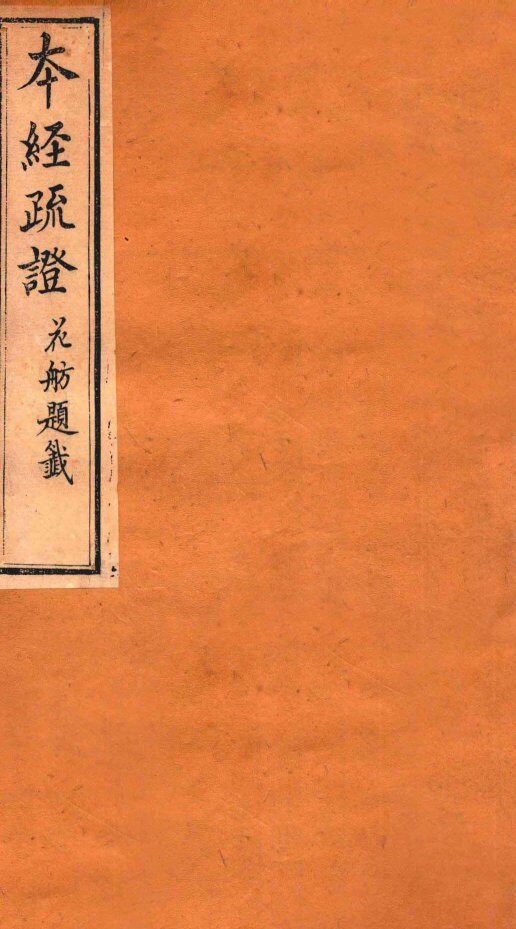 本経疏證
花舫題籤